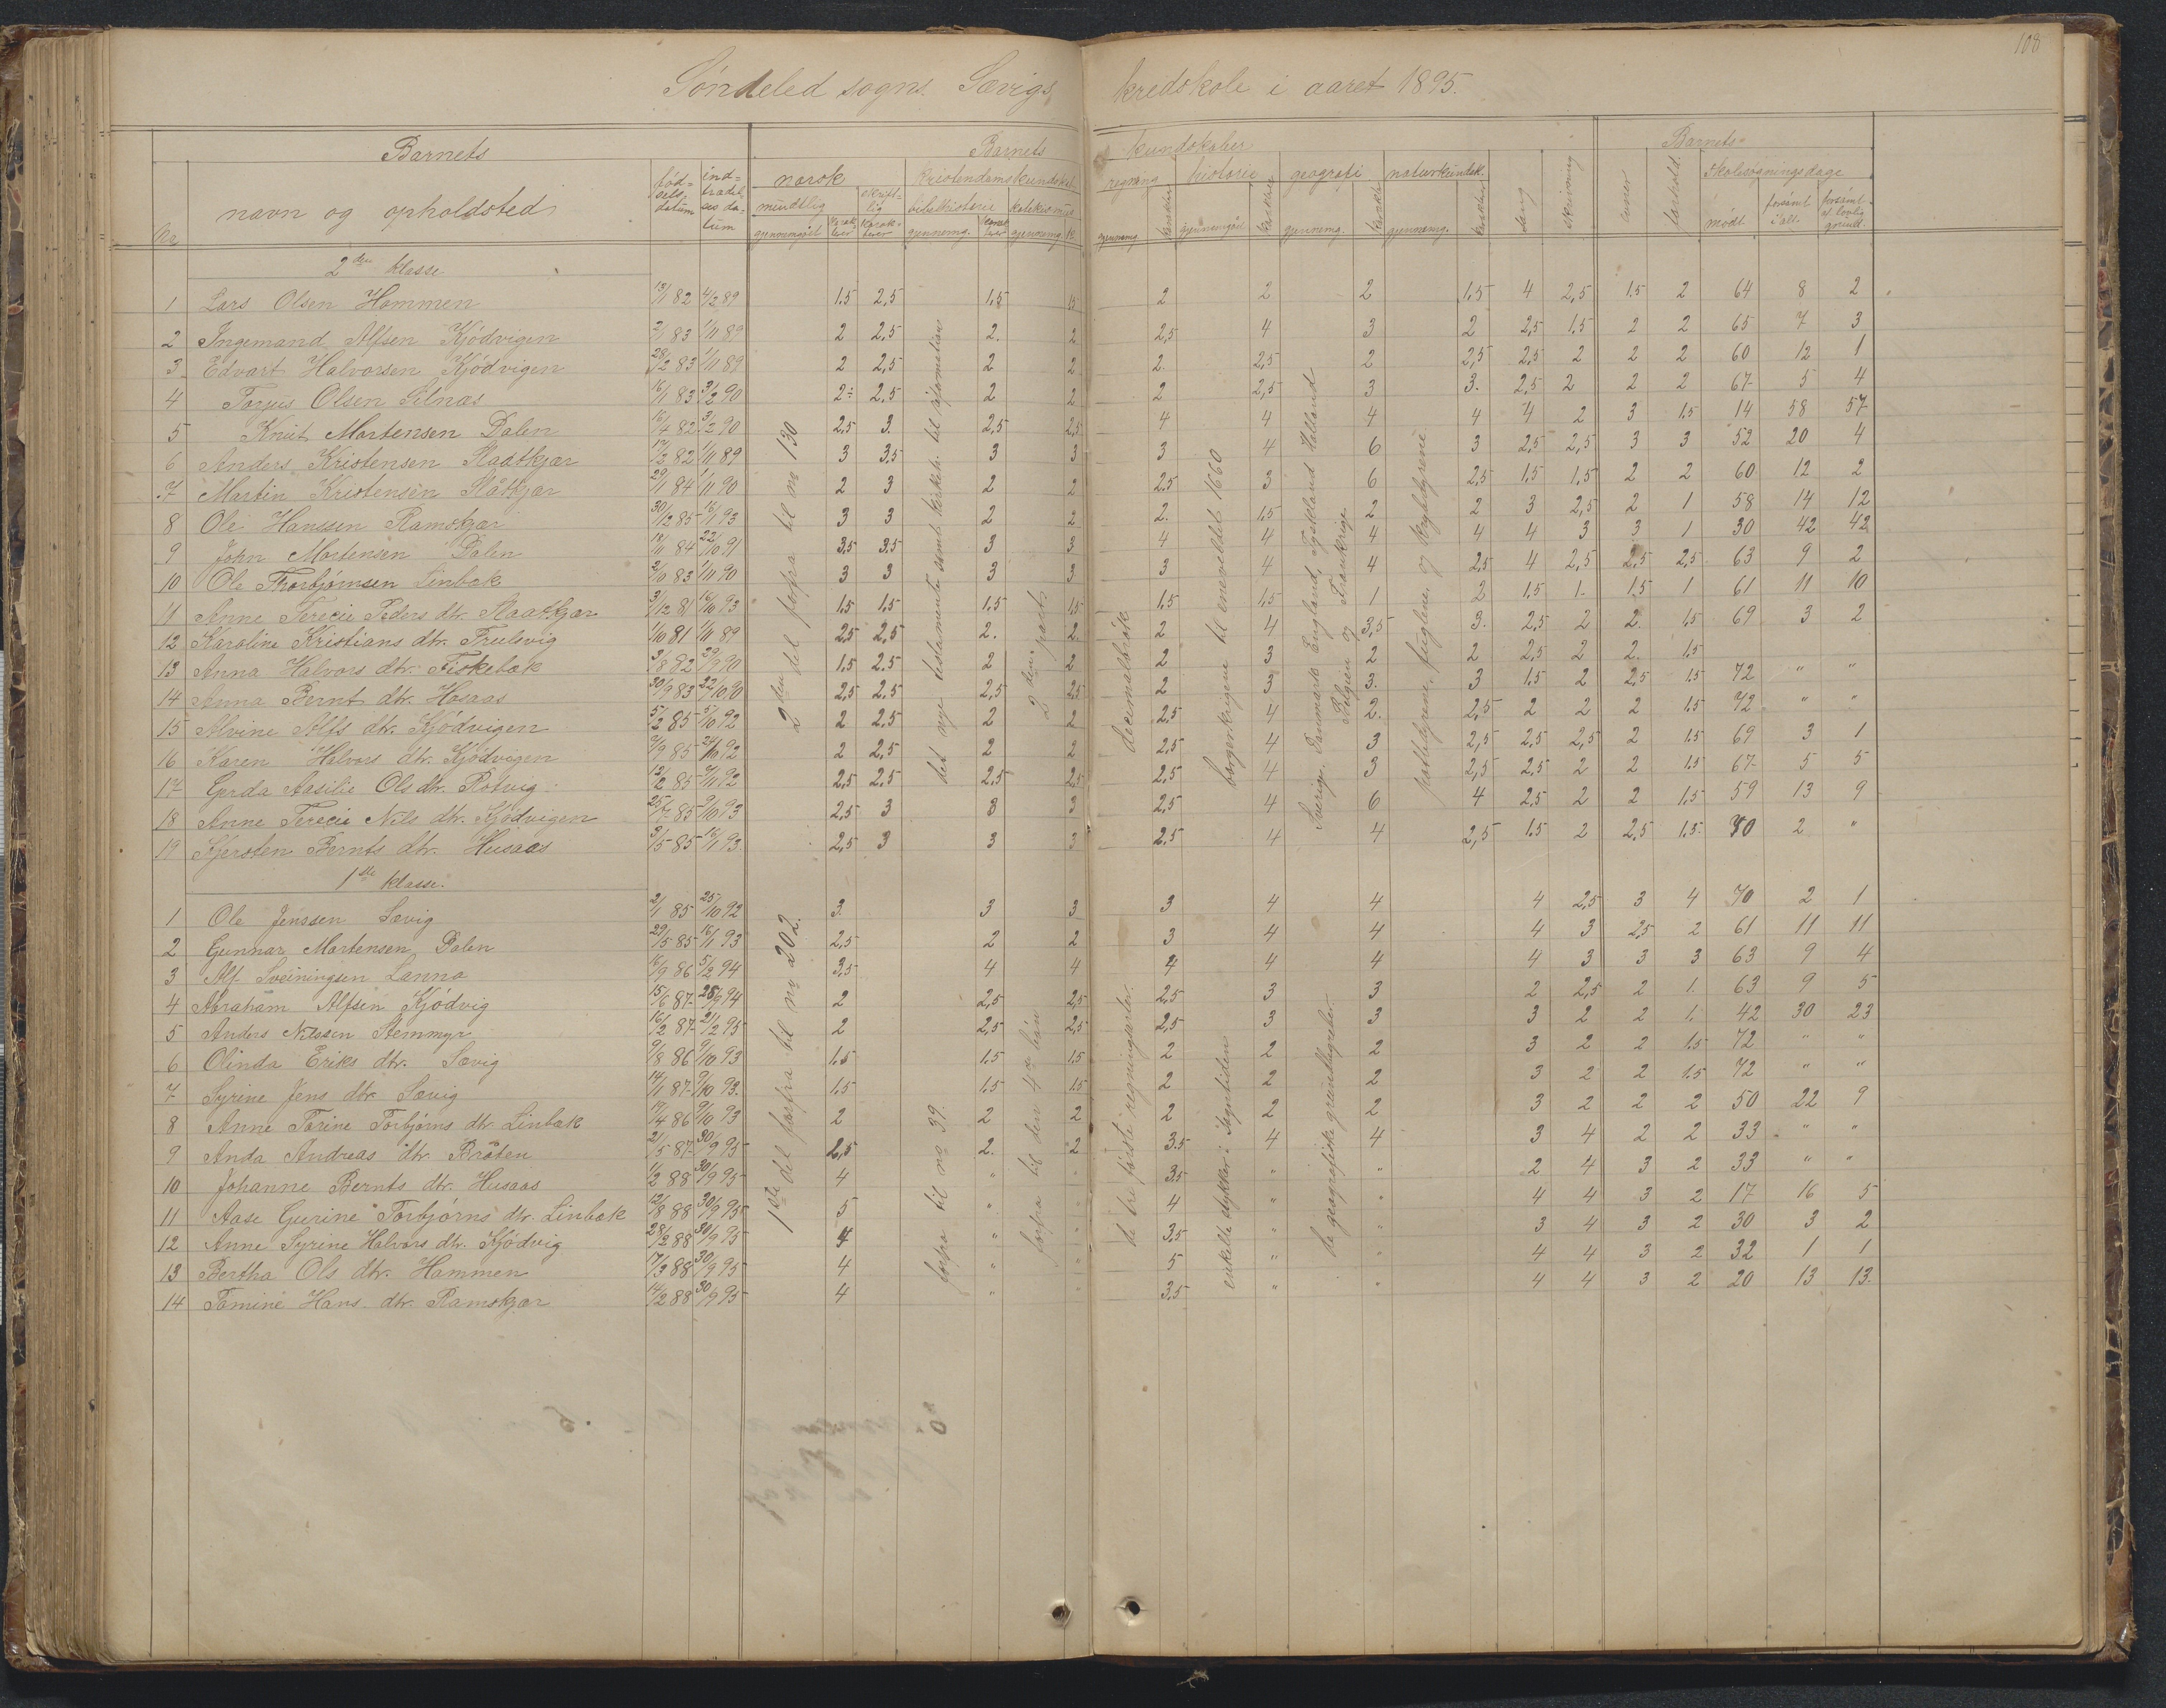 108
Søndeled sogns. Sævigs kredskole i aaret 1895.
Barnets Barnets kundskaber Barnets
No navn og opholdsted fødselsdatum indtrædelsesdatum norsk kristendomskundskab regning historie geografi naturkundsk. sang skrivning evner forhold skolesøgningsdage
mundtlig skriftlig bibelhistorie katekismus
gjennemgået karakterer karakterer gjennemg. karakterer gjennemg. k gjennemg. karakter gjennemgået karakter gjennemg. karakt gjennemg. karakter mødt forsømt i alt. forsømt af lovlig grund.
2den klasse
1 Lars Olsen Hammen 13/1 82 4/2 89 1.5 2,5 1.5 1.5 2 2 2 1.5 4 2,5 1.5 2 64 8 2
2 Ingemand Alfsen Kjødvigen 2/1 83 1/11 89 2 2,5 2. 2 2,5 4 3 2 2,5 1.5 2 2 65 7 3
3 Edvart Halvorsen Kjødvigen 28/2 83 1/11 89 2 2,5 2 2 2. 2,5 2 2,5 2,5 2 2 2 60 12 1
4 Torjus Olsen Silnæs 16/1 83 3/2 90 2 2,5 2 2 2 2,5 3 3. 2,5 2 2 2 67 5 4
5 Knut Mortensen Dalen 16/4 82 3/2 90 2,5 3. 2,5 2,5 4 4 4 4 4 2 3 1.5 14 58 57
6 Anders Kristensen Staatkjær 17/2 82 1/11 89 3 3.5 3 3 3 4 6 3 2,5 2,5 3 3 52 20 4
7 Martin Kristensen Ståtkjær 29/1 84 1/11 90 2 3 2 2 2.5 3 6 2.5 1.5 1.5 2 2 60 12 2
8 Ole Hanssen Ramskjær 30/12 85 16/1 93 3 3 2 2 2. 1.5 2 2 3 2,5 2 1 58 14 12
9 John Mortensen Dalen 18/11 84 22/10 91 3.5 3.5 3 3 4 4 4 4 4 3 3 1 30 42 42
10 Ole Thorbjørnsen Linbæk 2/10 83 1/11 90 3 3 3 3 3 4 4 2.5 4 2,5 2,5 2,5 63 9 2
11 Anne Terecie Peders dtr. Staatkjær 3/12 81 16/10 93 1.5 1.5 1.5 1.5 1.5 1.5 1 2 1.5 1. 1.5 1 61 11 10
12 Karoline Kristians dtr. Trulsvig 1/10 81 1/11 89 2,5 2,5 2. 2. 2 4 3,5 3. 2,5 2 2. 1.5 69 3 2
13 Anna Halvors dtr. Fiskebæk 3/8 82 29/9 90 1.5 2.5 2 2 2 3 2 2 2,5 2 2. 1.5
14 Anna Bernt dtr. Husaas 30/9 83 22/10 90 2,5 2.5 2,5 2,5 2 3 3. 3 1.5 2 2,5 1.5 72 " "
15 Alvine Alfs dtr. Kjødvigen 5/2 85 5/10 92 2 2.5 2 2 2.5 4 2. 2,5 2 2 2 1.5 72 " "
16 Karen Halvors dtr. Kjødvigen 2/9 85 24/10 92 2 2,5 2 2 2,5 4 3 2,5 2,5 2,5 2 1.5 69 3 1
17 Gerda Aasilie Ols dtr. Rotvig 12/2 85 2/11 92 2,5 2,5 2,5 2,5 2,5 4 3 2,5 2,5 2 2 1.5 67 5 5
18 Anne Terecie Nils dtr. Kjødvigen 25/7 85 9/10 93 2,5 3 3 3 2,5 4 6 4 2,5 2 2 1.5 59 13 9
19 Kjersten Bernts dtr. Husaas 3/5 85 16/1 93 2,5 3 3 3 2,5 4 4 2,5 1.5 2 2,5 1.5 70 2 "
2den del forfra til no 130
det nye testamente samt kirkeh. til reformation
2den part
decimalbrøk
borgerkrigene til eneveldet 1660
Sverige. Danmark England, Tyskland Holland
Belgien og Frankrige
pattedyrene, fuglene, og krybdyrene
1ste klasse.
1 Ole Jenssen Sævig 2/1 85 25/10 92 3. 3 3 3 4 4 4 2,5 3 4 70 2 1
2 Gunnar Mortensen Dalen 29/5 85 16/1 93 2,5 2 2 3 4 4 4 3 2,5 2 61 11 11
3 Alf Sveiningsen Lanna 16/9 86 5/2 94 3,5 4 4 4 4 4 4 3 3 3 63 9 4
4 Abraham Alfsen Kjødvig 15/6 87 28/9 94 2 2,5 2,5 2,5 3 3 2 2,5 2 1. 63 9 5
5 Anders Nilssen Stemmyr 16/2 87 21/2 95 2 2,5 2,5 2,5 3 3 3 2 2 1. 42 30 23
6 Olinda Eriks dtr. Sævig 9/8 86 9/10 93 1.5 1.5 1.5 2 2 2 3 2 2 1.5 72 " "
7 Syrine Jens dtr Sævig 14/1 87 9/10 93. 1.5 1.5 1.5 2 2 2 3 2 2 1.5 72 " "
8 Anne Torine Torbjørns dtr Linbæk 17/4 86 9/10 93 2 2 2 2 2 2 3 2 2 2 50 22 9
9 Anda Andreas dtr. Bråten 21/5 87 30/9 95 2,5 2. 2 3.5 4 4 3 4 2 2 33 " "
10 Johanne Bernts dtr. Husaas 1/2 88 30/9 95 4 " 3.5 " " 2 4 3 2 33 " "
11 Aase Gurine Torbjørns dtr. Linbæk 12/8 88 30/9 95 5 " 4 " " 4 4 3 2 17 16 5
12 Anne Syrine Halvors dtr. Kjødvig 28/2 88 30/9 95 4 " 3,5 " " 3 4 3 2 30 3 2
13 Bertha Ols dtr. Hammen 17/3 88 30/9 95 4 " 5 " " 4 4 3 2 32 1 1
14 Tomine Hans. dtr. Ramskjær 14/2 88 30/9 95 4 " 3.5 " " 4 4 3 2 20 13 13.
1ste del forfra til no 202.
forfra til no 39.
forfra til den 4de bøn
de tre første regningsarter.
enkelte stykker i sagntiden
de geografiske grundbegreber